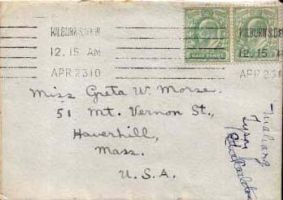 KILBURN S.O. N.W
12.15 AM
APR 23 10
12.15
APR 23 10
Miss Greta W. Morse.
51 Mt. Vernon St.,
Haverhill,
Mass.
U.S.A.